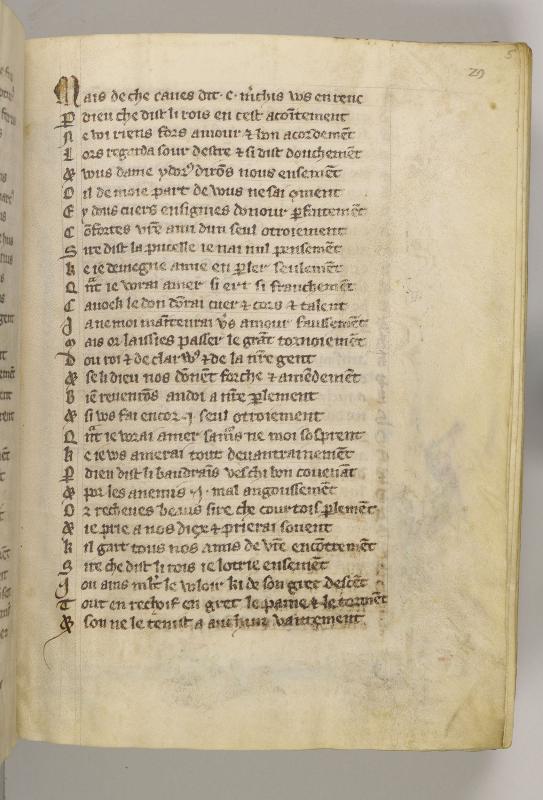 Mais de che caues dit .c. m̄chis ws en renc
P dieu che dist li rois en cest acōtement
N e wi riens fors amour & bon acordemēt
L ors regarda sour destre & si dist douchemēt
& wus dame ydorꝰ dirōs nous ensement
O il de moie part de wus ne sai ꝯment
E y dous cuers ensignies donour ꝑfaitemēt
C ōfortes vr̄e ami dun seul otroiement
S ire dist la pucelle ie nai nul pensemēt
k e ie deuiegne amie en ꝑler seulemēt
Q n̄t ie vorai amer si ert si franchemēt
C auoek le don dōrai cuer & cors & talent
J a ne moi maītenrai v̄s amour faussemēt
M ais or laissies passer le grāt tornoiemēt
D ou roi & de clarꝰ & de la nr̄e gent
& se li dieu nos dōnēt forche & amēdemēt
B iē reuenrōs andoi a nr̄e ꝑlement
& si ws fai encor .j. seul otroiement
Q n̄t ie vorai amer sans ne moi sosprent
k e ie ws amerai tout deuantrainemēt
P dieu dist li baudrais veschi bon couenāt
& por les anemis .j. mal angoissemēt
O r recheues beaus sire che courtois ꝑlemēt
& ie prie a nos diex & prierai souent
k il gart tous nos amis de vr̄e encōtremēt
S ire che dist li rois ie lotrie ensemēt
J ou ains ml̄t le woloir ki de son gree descēt
T out en rechoif en gret le paine & le tormēt
& son ne le tenist a auchun vantement